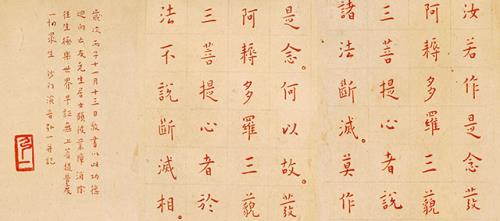 汝若作是念發
阿耨多羅三藐
三菩提心者說
諸法斷滅。莫作
是念。何以故。發
阿耨多羅三藐
三菩提心者於
法不說斷滅相。
歲次丙子十一月十三日敬書以此功德
迴向亡友克生居士願彼業障消除
往生極樂世界早證無上菩提普度
一切眾生 沙門演音弘一并記